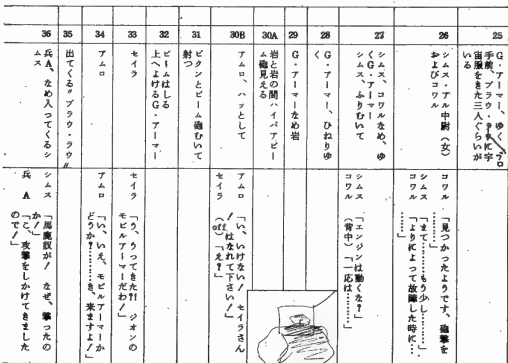 25
G・アーマー、ゆく
手前、ブラウ・ブロに宇
宙服をきた三人ぐらいが
いる
26
シムス・アル中尉（女）
およびコワル
コワル 「見つかったようです、砲撃を
………」
シムス 「まて………もう少し………」
コワル 「よりによって故障した時に…
………」
27
シムス、コワルなめ、ゆ
くG・アーマー
シムス、ふりむいて
シムス 「エンジンは動くな？」
コワル （背中）「一応は………」
28
G・アーマー、ひねりゆ
く
29
G・アーマーなめ岩
30A
岩と岩の間ハイパアビー
ム砲見える
30B
アムロ、ハッとして
アムロ 「い、いけない！ セイラさん
！ はなれて下さい！」
セイラ （off）「え？」
31
ピタンとビーム砲むいて
射つ
32
ビームはしる
上へよけるG・アーマー
33
セイラ
セイラ 「う、うってきた?! ジオンの
モビルアーマーだわ！」
34
アムロ
アムロ 「い、いえ、モビルアーマーか
どうか？………き、来ますよ！」
35
出てくる〃ブラウ・ブロ〃
36
兵A、なめ入ってくるシ
ムス
シムス 「馬鹿奴が！ なぜ、撃ったの
か！」
兵A 「こ、攻撃をしかけてきました
ので！」